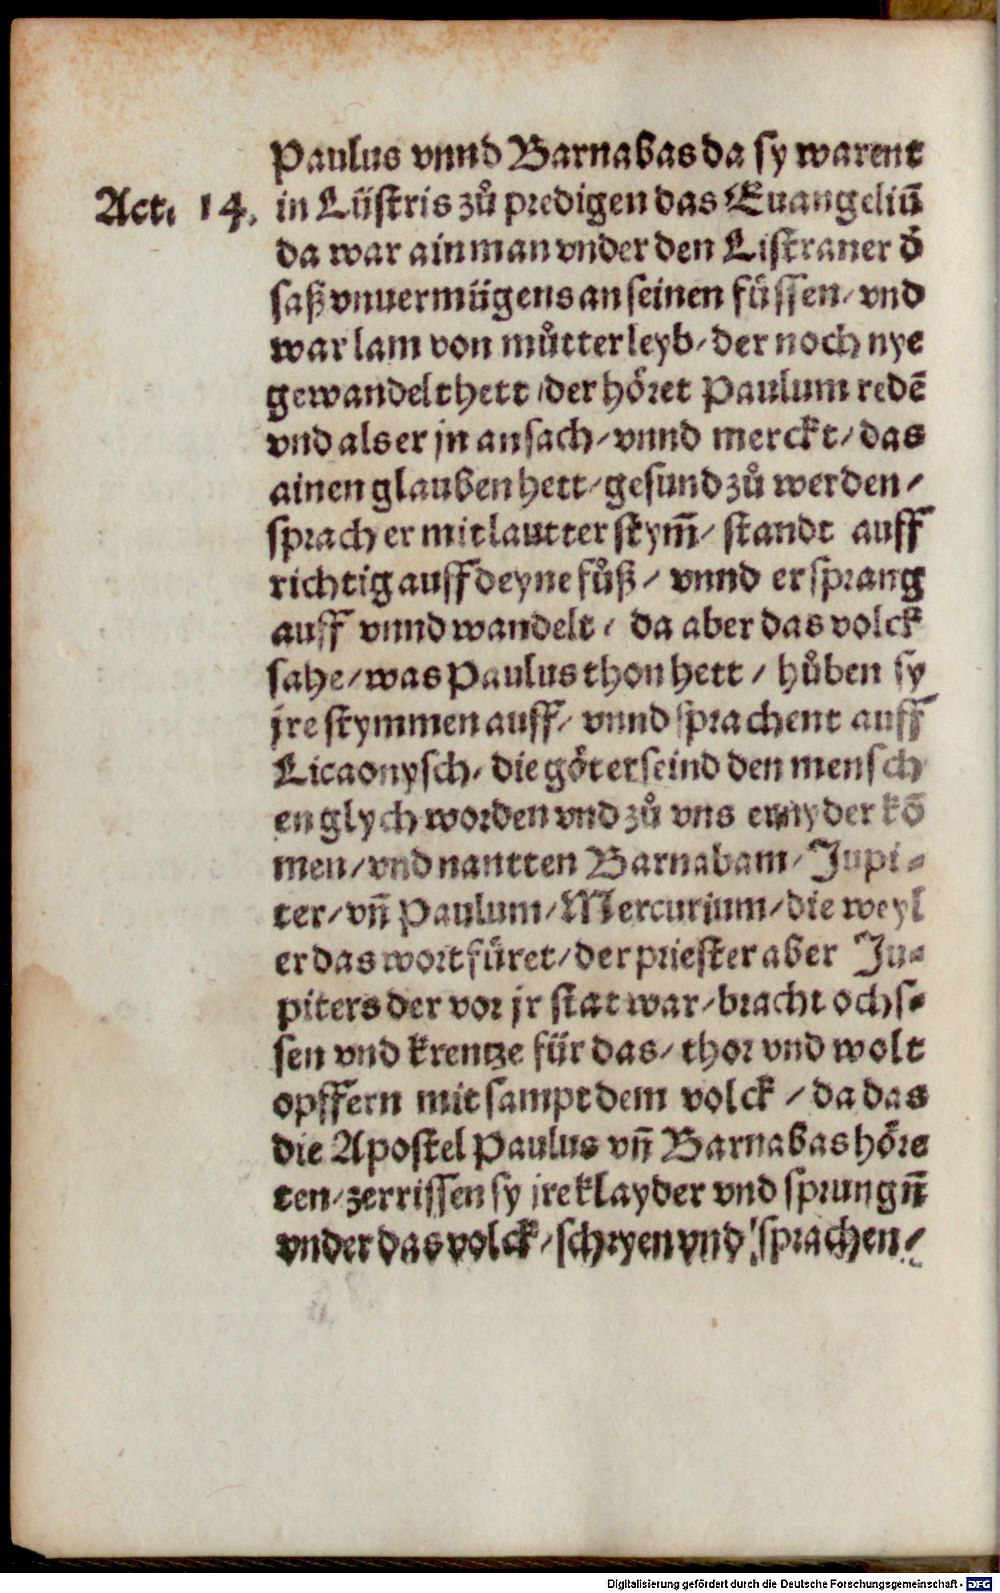 Paulus vnnd Barnabas da sy warent
Act. 14. in Lüstris zů predigen das Euangeliū
da war ain man vnder den Listraner d̄
saß vnuermügens an seinen füssen / vnd
war lam von můtter leyb / der noch nye
gewandelt hett / der höret Paulum redē
vnd als er jn ansach / vnnd merckt / das
ainen glauben hett / gesund zů werden /
sprach er mit lautter stym̄ / standt auff
richtig auff deyne fůß / vnnd er sprang
auff vnnd wandelt / da aber das volck
sahe / was Paulus thon hett / hůben sy
jre stymmen auff / vnnd sprachent auff
Licaonysch / die göter seind den mensch
en glych worden vnd zů vns ernyder kō
men / vnd nantten Barnabam / Jupi⸗
ter / vn̄ Paulum / Mercurium / die weyl
er das wort füret / der priester aber Ju⸗
piters der vor jr stat war / bracht ochs⸗
sen vnd krentze für das / thor vnd wolt
opffern mit sampt dem volck / da das
die Apostel Paulus vn̄ Barnabas höre
ten / zerrissen sy jre klayder vnd sprungn̄
vnder das volck / schryen vnd sprachen /
Digitalisierung gefördert durch die Deutsche Forschungsgemeinschaft - DFG